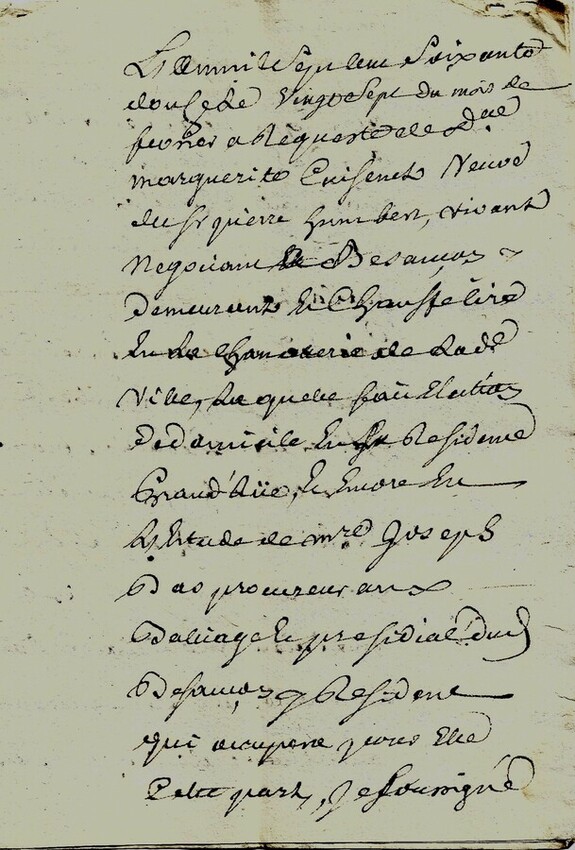 L'an mil sept cent soixante
douse, le vingt sept du mois de
fevrier a Requeste de d.elle
marguerite veuve
du Sr pierre humbert, vivant
Negociant a Besançon
Demeurante
en la de ladte
Ville, laquelle fait Election
De domicile en sa Residence
Grand' Rüe, et encore en
L'Estude de mre Joseph
procureur aux
Baliage et presidial dud
Besançon y Resident
qui occupera pour Elle
Cette part, Je soussigné